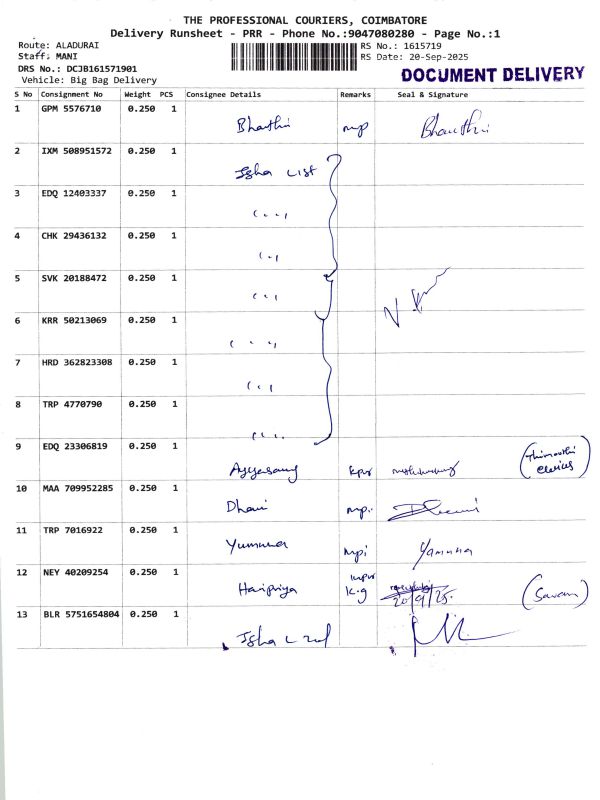 THE PROFESSIONAL COURIERS, COIMBATORE
Delivery Runsheet - PRR - Phone No.:9047080280 - Page No.:1
Route: ALADURAI
RS No.: 1615719
Staff: MANI
RS Date: 20-Sep-2025
DRS No.: DCJB161571901
DOCUMENT DELIVERY
Vehicle: Big Bag Delivery
S No Consignment No Weight PCS Consignee Details Remarks Seal & Signature
1 GPM 5576710 0.250 1 Bharthi mp Bharthi
2 IXM 508951572 0.250 1 Isha List
3 EDQ 12403337 0.250 1
4 CHK 29436132 0.250 1
5 SVK 20188472 0.250 1
6 KRR 50213069 0.250 1
7 HRD 362823308 0.250 1
8 TRP 4770790 0.250 1
9 EDQ 23306819 0.250 1 Ayyasamy
10 MAA 709952285 0.250 1 Dhani mp.
11 TRP 7016922 0.250 1 Yumuna mpi Yamuna
12 NEY 40209254 0.250 1 Haripriya K.g 20/9/25 (Savam)
13 BLR 5751654804 0.250 1 Isha